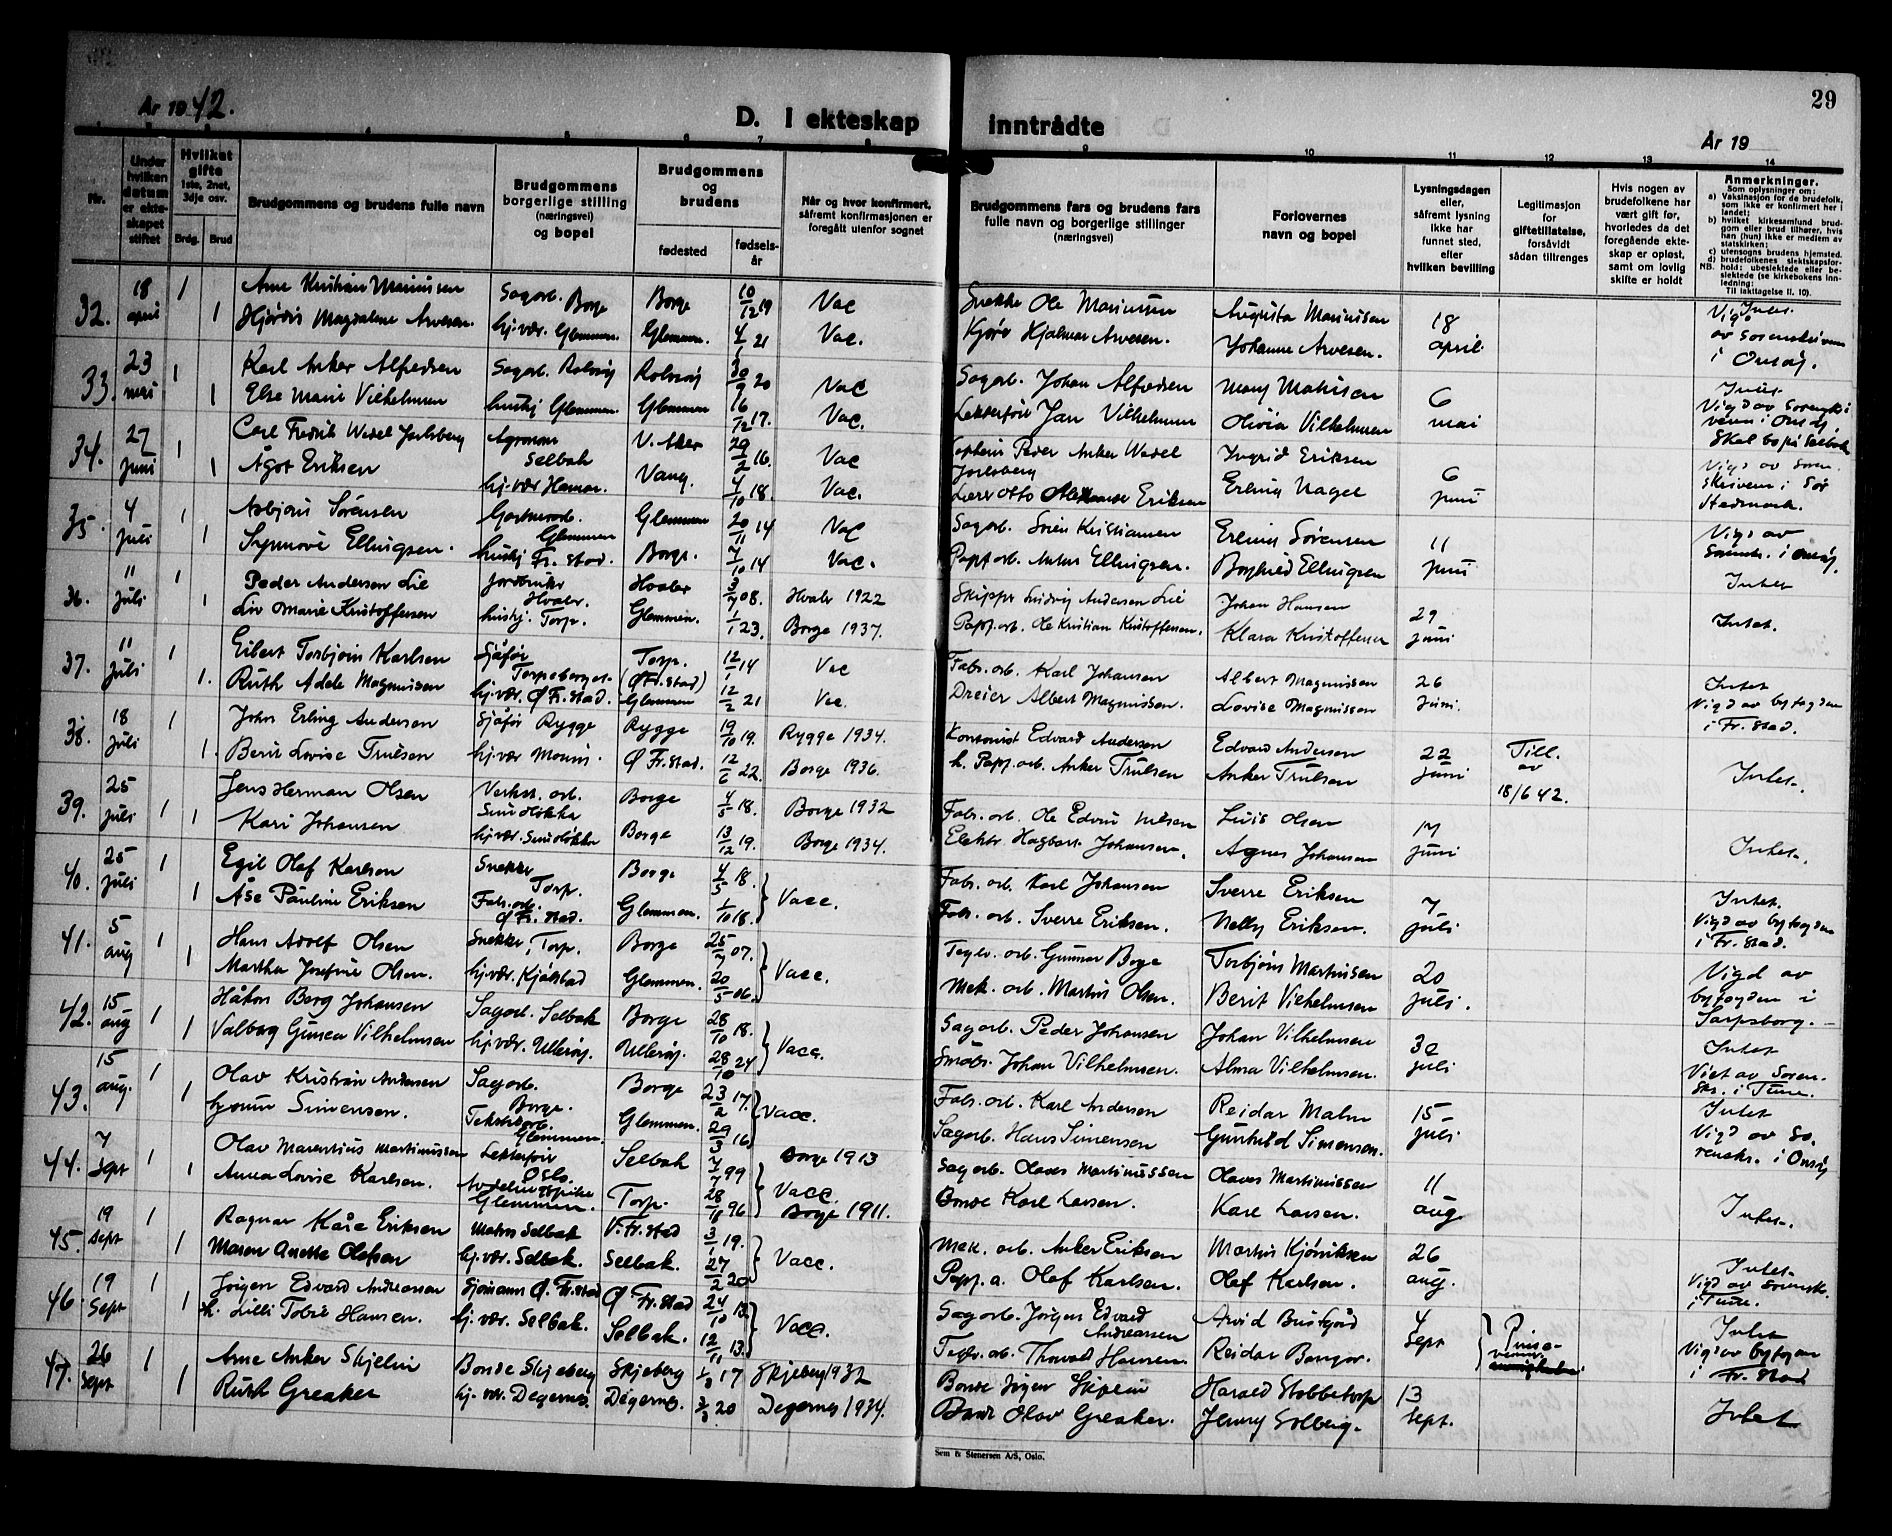 29
År 1942.
D. I ekteskap inntrådte
År 19
Nr.
Under hvilken datum er ekteskapet stiftet
Hvilket gifte 1ste, 2net, 3dje osv.
Brdg. Brud
Brudgommens og brudens fulle navn
Brudgommens borgerlige stilling (næringsvei) og bopel
Brudgommens og brudens
fødested
fødselsår
Når og hvor konfirmert, såfremt konfirmasjonen er foregått utenfor sognet
Brudgommens fars og brudens fars fulle navn og borgerlige stillinger (næringsvei)
Forlovernes navn og bopel
Lysningsdagen eller, såfremt lysning ikke har funnet sted, efter hvilken bevilling
Legitimasjon for giftetillatelse, forsåvidt sådan tiltrenges
Hvis nogen av brudefolkene har vært gift før, hvorledes da det foregående ekteskap er opløst, samt om lovlig skifte er holdt
Anmerkninger.
Som oplysninger om:
a) Vaksinasjon for de brudefolk, som ikke er konfirmert her i landet;
b) hvilket kirkesamfund brudgom eller brud tilhører, hvis han (hun) ikke er medlem av statskirken;
c) utensogns brudens hjemsted.
d) brudefolkenes slektskapsforhold: ubeslektede eller beslektede (se kirkebokens innledning: Til iakttagelse II. 10).
32. 18 april 1 Arne Kristian Marinusen Sagarb. Borge Borge 10/12 19 Vac Snekke Ole Marinusen Augusta Marinusen 18 april Intet
1 Hjørdis Magdalene Arvesen hj.vær. Glemmen Glemmen. 4/1 21 Vac. Kjøre Hjalmar Arvesen. Johanne Arvesen. Vigd av sorenskriveren i Onsøy.
33. 23 mai 1 Karl Anker Alfredsen Sagarb. Rolvsøy Rolvsøy 30/9 20 Vac Sagarb. Johan Alfredsen Mary Mathisen 6 mai Intet
1 Else Marie Vilhelmsen hushj Glemmen Glemmen 16/12 17. Vac. Lekterfør Jan Vilhelmsen Olivia Vilhelmsen Vigd av Sorenskriveren i Onsøy. Skal bo på Selbak
34. 27 juni 1 Carl Fredrik Wedel Jarlsberg Agronom Selbak V. Aker 29/2 16. Vac Peder Anker Wedel Jarlsberg Ingrid Eriksen 6 juni
1 Ågot Eriksen hj.vær Hamar. Vang. 4/10 18. Vac. Lærer Otto Eriksen Erling Nagel Vigd av Sorenskriveren i Sør Hedmark.
35. 4 juli 1 Asbjørn Sørensen Gartnerarb. Glemmen Glemmen 20/11 14 Vac Sagarb. Søren Kristiansen Erling Sørensen 11 juni
1 Synnøve Ellingsen. hushj Fr.stad. Borge. 7/10 14 Vac. Papp.arb. Anton Ellingsen. Borghild Ellingsen Vigd av Sorenskr. i Onsøy. Intet
36. 11 juli 1 Peder Andersen Lie jordbruker Hvaler. Hvaler 3/7 08. Hvaler 1922 Skipper Ludvig Andersen Lie Johan Hansen 29 juni
1 Liv Marie Kristoffersen hushj. Torp. Glemmen. 1/1 23. Borge 1937. Papp.arb. Ole Kristian Kristoffersen. Klara Kristoffersen Intet.
37. 11 juli 1 Eibert Torbjørn Karlsen Sjåfør Torpeberget Torp. (Ø Fr.stad) 12/1 14 Vac Fabr.arb. Karl Johansen Albert Magnussen 26 juni. Intet
1. Ruth Adele Magnussen hj.vær. Ø Fr.stad. Glemmen 12/2 21 Vac. Dreier Albert Magnussen. Lovise Magnussen Vigd av byfogden i Fr.stad.
38. 18 juli 1 John Erling Andersen Sjåfør Rygge Rygge 19/10 19. Rygge 1934. Kontorist Edvard Andersen Edvard Andersen 22 juni Till. av 18/6 42.
1. Berit Lovise Trulsen hj.vær Moum. Ø Fr.stad. 12/6 22. Borge 1936. h. Papp.arb. Anker Trulsen Anker Trulsen Intet.
39. 25 juli 1 Jens Herman Olsen Verkst. arb. Sundløkka Borge 4/5 18. Borge 1932 Fabr.arb. Ole Edvin Nilsen Livis Olsen 17 juni
1 Kari Johansen hj.vær. Sundløkka Borge 13/12 19. Borge 1934. Elektr. Hagbart Johansen. Agnes Johansen Intet.
40. 25 juli 1 Egil Olaf Karlsen Snekker Torp. Borge 4/5 18. Vacc. Fabr.arb. Karl Johansen Sverre Eriksen 7 juli Intet.
1 Åse Pauline Eriksen Fabr.arb. Ø Fr.stad. Glemmen. 1/10 18. Fabr.arb. Sverre Eriksen. Nelly Eriksen. Vigd av byfogden i Fr.stad.
41. 5 aug 1 Hans Adolf Olsen Snekker, Torp. Borge 25/7 07. Vacc. Teglv. arb. Gunnar Borge Torbjørn Martinsen 20 juli.
1 Martha Josefine Olsen. hj.vær. Kjølstad Glemmen. 20/5 06. Mek. arb. Martin Olsen. Berit Vilhelmsen Vigd av byfogden i Sarpsborg.
42. 15 aug 1 Håkon Berg Johansen Sagarb. Selbak Borge 28/10 18. Vacc. Sagarb. Peder Johansen Johan Vilhelmsen 30 juli Intet
1 Valborg Gunea Vilhelmsen hj.vær. Ullerøy. Ullerøy. 28/10 24 Småbr. Johan Vilhelmsen. Alma Vilhelmsen. Viet av Sorenskr. i Tune.
43. 15 aug. 1 Olav Kristian Andersen Sagarb. Borge. Borge 23/2 17. Vacc. Fabr.arb. Karl Andersen Reidar Malm 15 juli Intet
1 Gunn Simensen. Tekstilarb. Glemmen. Glemmen. 29/3 16 Sagarb. Hans Simensen Gunhild Simensen. Vigd av Sorenskr. i Onsøy
44. 7 sept 1 Olav Marentius Martinussen Lekterfør Oslo. Selbak 4/7 99 Borge 1913 Sagarb. Olaves Martinussen Olaves Martinussen 11 aug
1 Anna Lovise Karlsen. Glemmen. Torp. 28/11 96 Vacc. Borge 1911. Bonde Karl Larsen. Karl Larsen. Intet.
45. 19 sept 1 Ragnar Kåre Eriksen Matros Selbak V. Fr.stad 3/1 19. Vacc. Mek. arb. Anker Eriksen Martin Kjøniksen 26 aug.
1 Maren Anette Olafsen hj.vær. Selbak. Selbak. 27/2 20 Papp.a. Olaf Karlsen. Olaf Karlsen. Intet. Vigd av Sorenskr. i Tune.
46. 19 Sept 1 Jørgen Edvard Andreassen Sjømann Ø. Fr.stad Ø Fr.stad 24/10 13. Vacc. Sagarb. Jørgen Edvard Andreassen Arvid Bustgård 4 Sept Intet
1 h. Lilli Tobie Hansen. hj.vær. Selbak. Selbak. 12/11 13. Teglv.arb. Thorvald Hansen. Reidar Bangor. Pinse-venn Vigd av byfogden i Fr.stad
47. 26 Sept 1 Arne Anker Skjelin Bonde Skjeberg Skjeberg 1/3 17 Skjeberg 1932 Bonde Jørgen Skjelin Harald Stobbetorp 13 sept.
1 Ruth Greaker hj. vær. Degernes. Degernes. 3/3 20 Degernes 1934. Bonde Olav Greaker. Jenny Solberg. Intet
Sem & Stenersen A/S, Oslo.